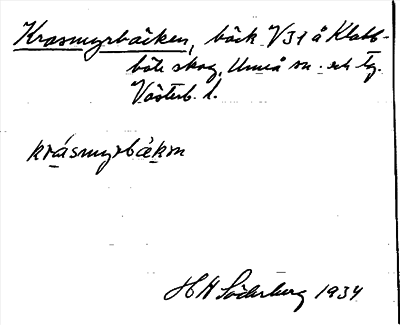 Krasmyrbäcken, bäck V31 å Klabb-
böle skog, Umeå sn. och tg.
Västerb. l.
krásmyrbä̀kɛn
H H Söderberg 1934